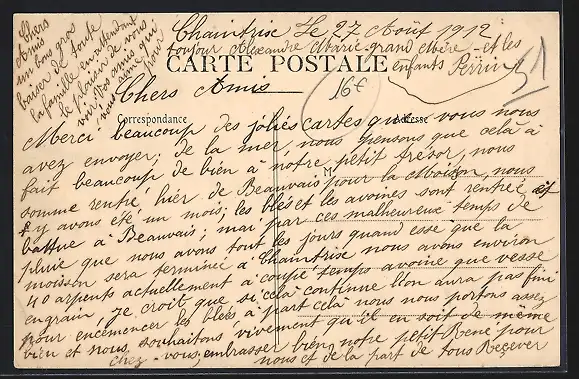 Chaintrise Le 27 Août 1912
CARTE POSTALE
Correspondance
Adresse
M
16€
Chers Amis
Merci beaucoup des jolies cartes que vous nous
avez envoyer; de la mer, nous pensons que cela à
fait beaucoup de bien à notre petit trésor, nous
somme rentré hier de Beauvais pour la Moison, nous
y avons été un mois; les blés et les avoines sont rentrée et
battue à Beauvais; mai par ces malheureux temps de
pluie que nous avons tout les jours quand esse que la
moisson sera terminée à Chaintrise nous avons environ
40 arpents actuellement à coupé temps avoine que vesse
en grain, je croit que se cela continue l'on aura pas fini
pour encemencer les bleés à part cela nous nous portons assez
bien et nous souhaitons vivement qu'il en soit de même
chez vous, embrasser bien notre petit René pour
nous et de la part de tous Recever
Chers
Amis
un bons gros
baiser de toute
la famille en attendant
le plaisir de vous
voir vos amis qui
vous aime pour
toujour Alexandre Marie grand Mère et les
enfants Perrin